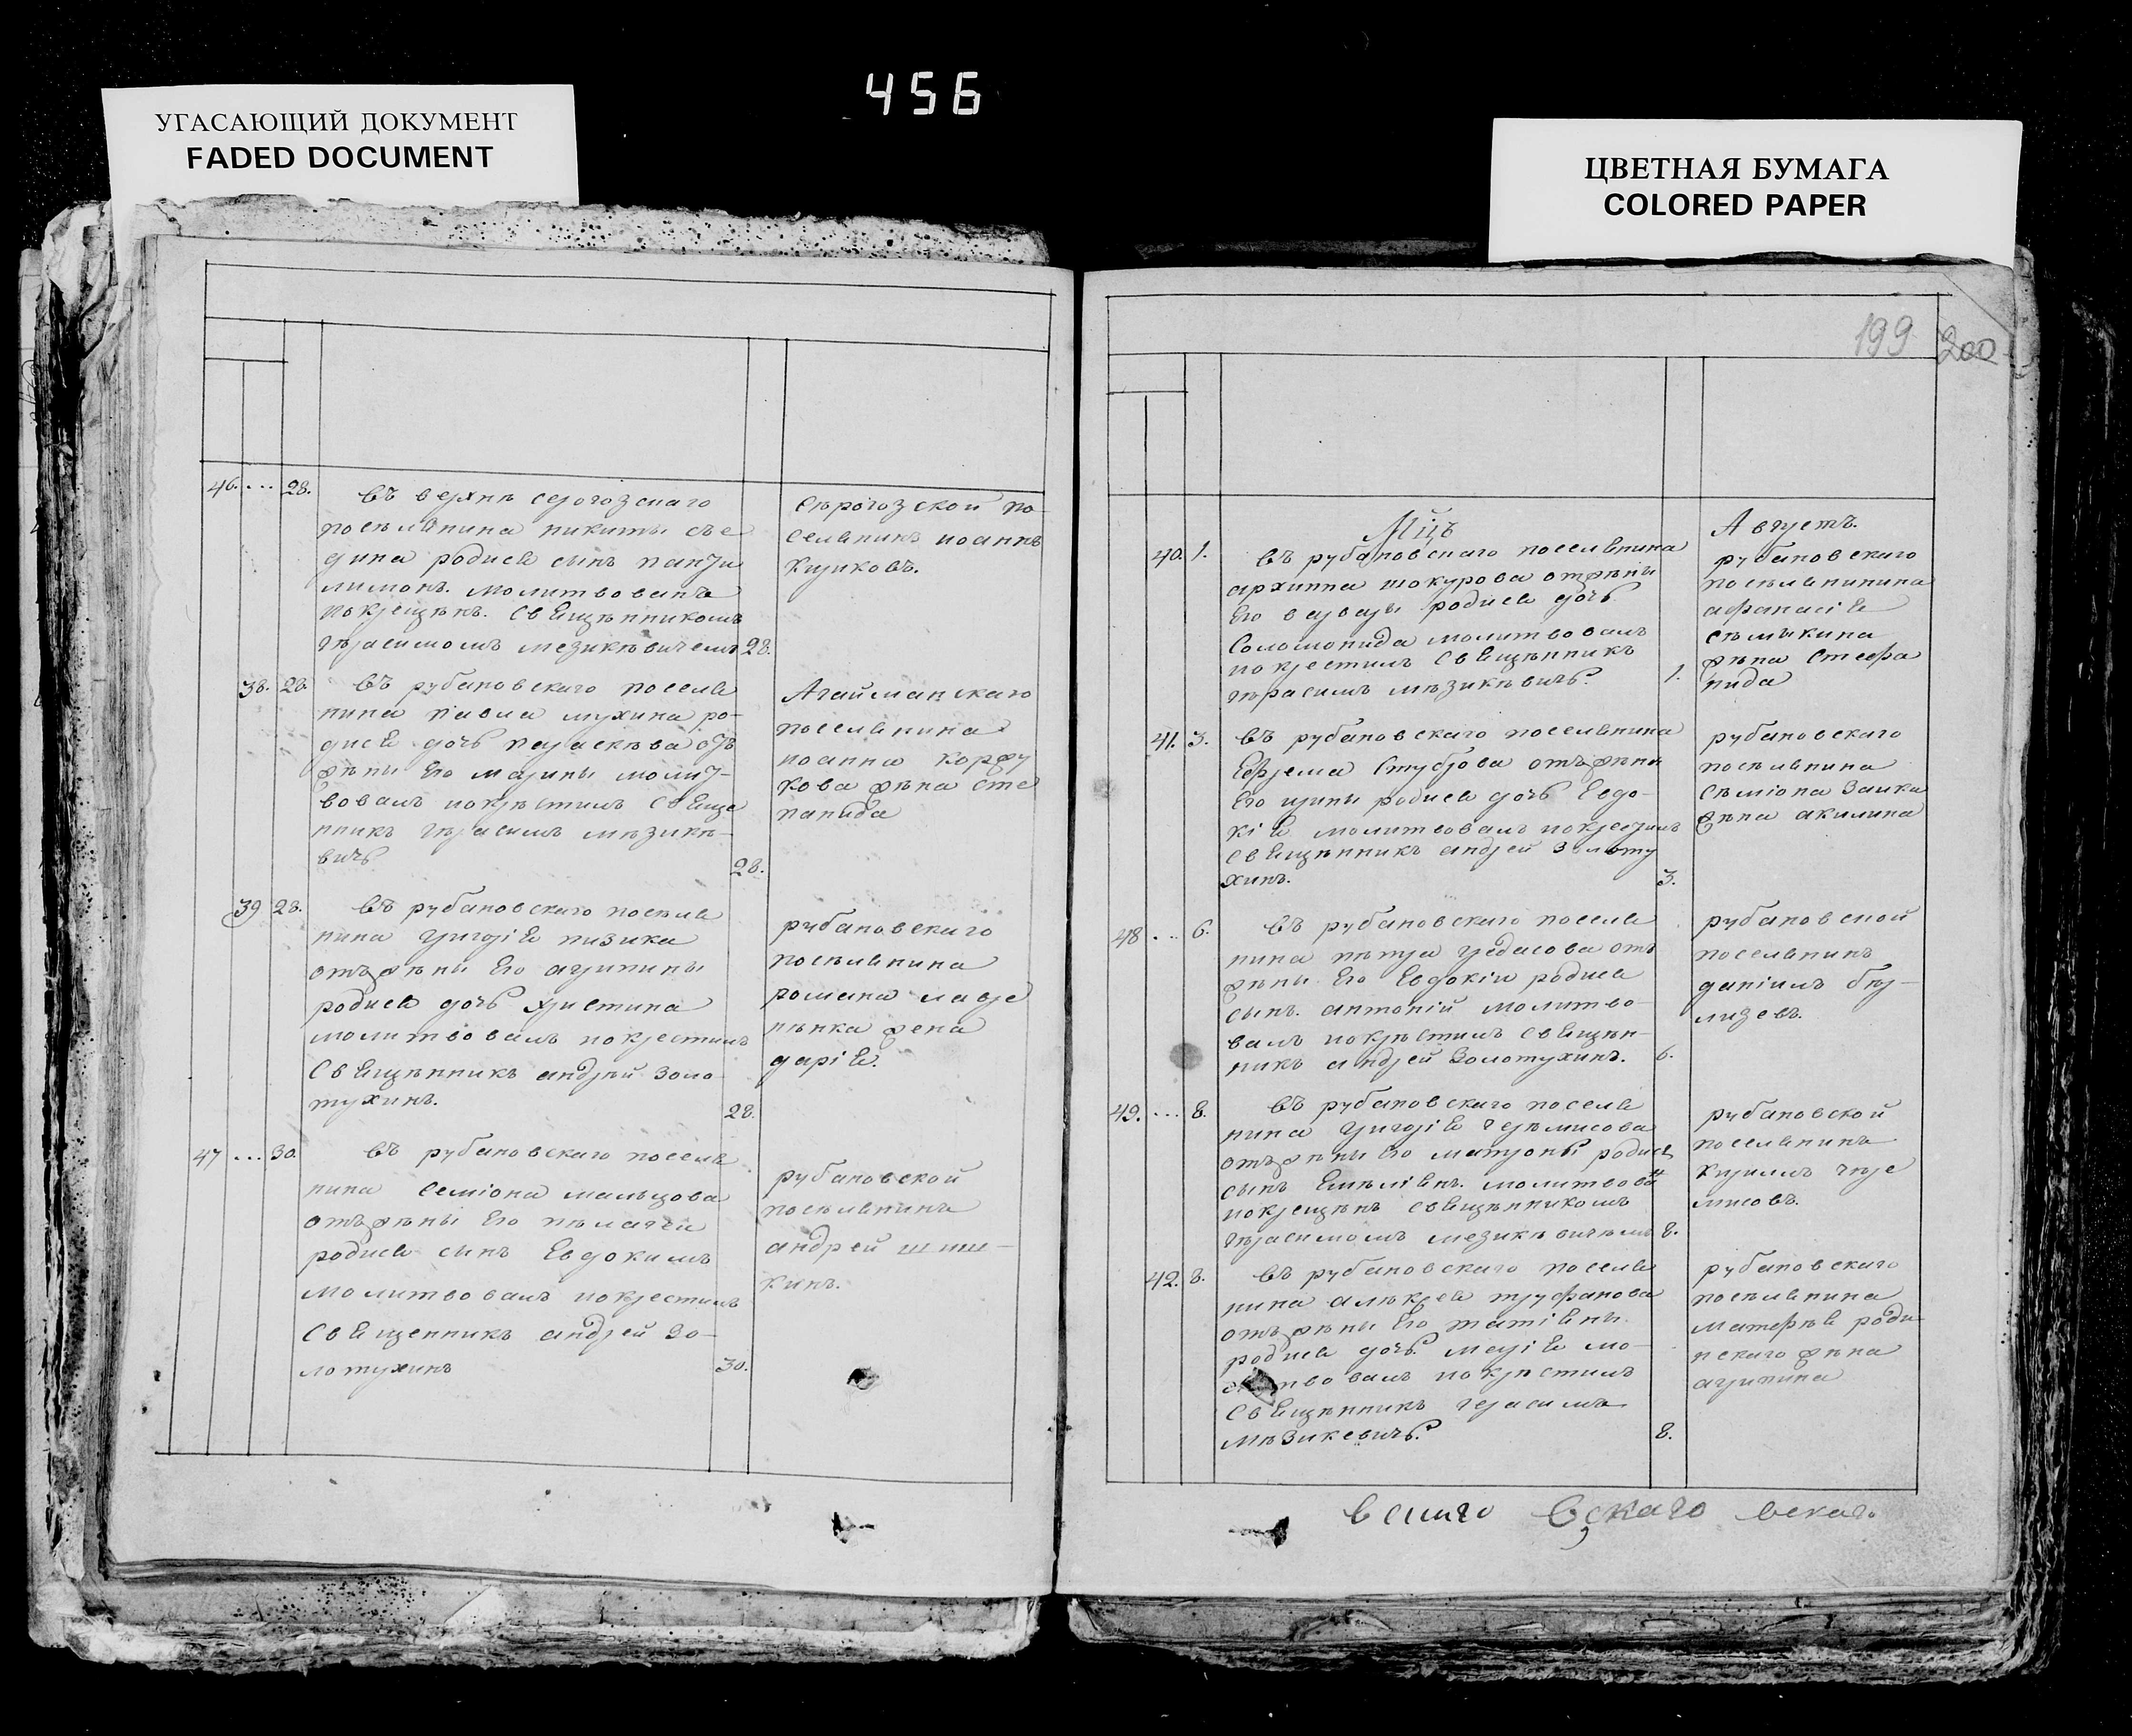 456
УГАСАЮЩИЙ ДОКУМЕНТ
FADED DOCUMENT
ЦВЕТНАЯ БУМАГА
COLORED PAPER
199 200
46. ... 28.
въ верхнѣ серогозскаго
посѣлянина никиты
родися сынъ
лимонъ. молитвованъ
покрещѣнъ. священникомъ
гѣрасимомъ мезикѣвичемъ 28.
сѣрогозской по
селянинъ иоаннъ
38. 28.
въ рубановскаго поселя
нина павла мухина ро-
дися дочь параскѣва отъ
жѣны его марины молит-
вовалъ покрѣстилъ свяще
нникъ гѣрасимъ мѣзикѣ-
вичъ 28.
Агайманскаго
поселянина
иоанна
кова жѣна сте
панида
39 28.
въ рубановскаго посѣля
нина григорія пизика
отъ жѣны его агрипины
родися дочь христина
молитвовалъ покрестилъ
свящѣнникъ андрѣй золо
тухинъ. 28.
рубановскаго
посѣлянина
романа лавре
нѣнка жена
дарія.
47 ... 30.
въ рубановскаго поселя
нина семіона мальцова
отъ жѣны его пѣлагеи
родися сынъ Евдокимъ
молитвовалъ покрестилъ
священникъ андрей зо-
лотухинъ 30.
рубановской
посѣлянинъ
андрей шиш-
кинъ.
Мцъ Августъ.
40. 1.
въ рубановскаго поселянина
архиппа шокурова от жѣны
Его варвары родися дочь
Соломонида молитвовалъ
покрестилъ свящѣнникъ
гѣрасимъ мѣзикѣвичъ. 1.
рубановскаго
посѣлянинина
афанасія
сѣмыкина
жѣна Стефа
нида
41. 3.
въ рубановскаго поселянина
Ефрема отъ жѣны
Его ирины родися дочь Евдо-
кія молитвовалъ покрестилъ
свящѣнникъ андрей золоту
хинъ. 3.
рубановскаго
посѣлянина
сѣміона заика
жѣна акилина
48 ... 6.
въ рубановскаго поселя
нина пѣтра от
жѣны Его Евдокіи родися
сынъ. антоній молитво-
валъ покрѣстилъ свящѣн-
никъ андрей золотухинъ. 6.
рубановской
поселянинъ
даніилъ
49. ... 8.
въ рубановскаго поселя
нина григорія черѣмисова
отъ жѣны его матроны родися
сынъ Емѣліянъ. молитвованъ
покрещѣнъ священникомъ
гѣрасимомъ мезикѣвичѣмъ 8.
рубановской
поселянинъ
кирилъ чере
мисовъ.
42. 8.
въ рубановскаго поселя
нина алѣксѣя труфанова
отъ жѣны Его татіяны
родися дочь марія мо-
литвовалъ покрѣстилъ
свящѣнникъ герасимъ
мѣзикевичъ. 8.
рубановскаго
посѣлянина
матфѣя роди
нскаго жѣна
агрипина
вскаго вскаго вскаго